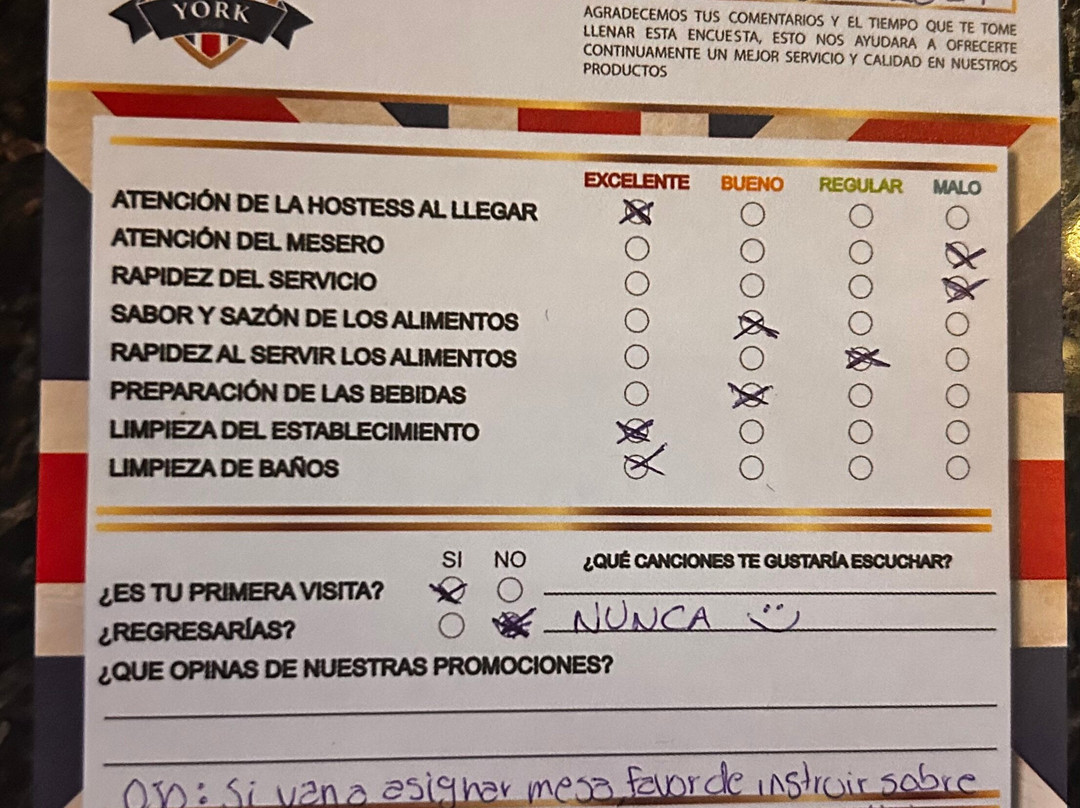 YORK
AGRADECEMOS TUS COMENTARIOS Y EL TIEMPO QUE TE TOME
LLENAR ESTA ENCUESTA, ESTO NOS AYUDARA A OFRECERTE
CONTINUAMENTE UN MEJOR SERVICIO Y CALIDAD EN NUESTROS
PRODUCTOS
EXCELENTE BUENO REGULAR MALO
ATENCIÓN DE LA HOSTESS AL LLEGAR
ATENCIÓN DEL MESERO
RAPIDEZ DEL SERVICIO
SABOR Y SAZÓN DE LOS ALIMENTOS
RAPIDEZ AL SERVIR LOS ALIMENTOS
PREPARACIÓN DE LAS BEBIDAS
LIMPIEZA DEL ESTABLECIMIENTO
LIMPIEZA DE BAÑOS
SI NO ¿QUÉ CANCIONES TE GUSTARÍA ESCUCHAR?
¿ES TU PRIMERA VISITA?
¿REGRESARÍAS? NUNCA
¿QUE OPINAS DE NUESTRAS PROMOCIONES?
Ojo: Si van a asignar mesa, favor de instruir sobre